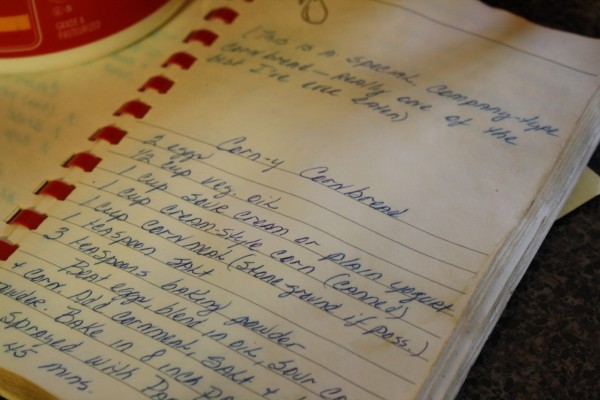 GRADE A
PASTEURIZED
(This is a special company-type
cornbread — really one of the
best I've ever eaten)
Corn-y Cornbread
2 eggs
1/2 cup veg. oil
1 cup sour cream or plain yogurt
1 cup cream-style corn (canned)
1 cup cornmeal (stone ground if poss.)
1 teaspoon salt
3 teaspoons baking powder
Beat eggs, blend in oil, sour
+ corn. Add cornmeal, salt +
Bake in 8 inch
sprayed with
45 mins.